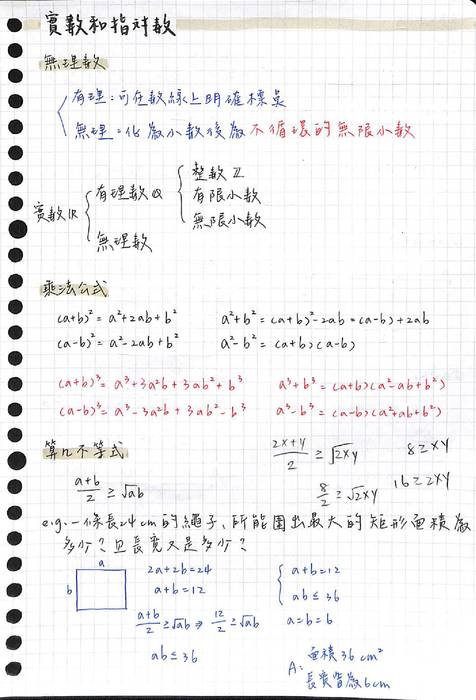 實數和指對數
無理數
有理:可在數線上明確標是
無理:化為小數後為不循環的無限小數
實數 ℝ
有理數 ℚ
整數 ℤ
有限小數
無限小數
無理數
乘法公式
(a+b)² = a²+2ab+b² a²+b² = (a+b)²-2ab = (a-b)+2ab
(a-b)² = a²-2ab+b² a²-b² = (a+b)(a-b)
(a+b)³ = a³+3a²b+3ab²+b³ a³+b³ = (a+b)(a²-ab+b²)
(a-b)³ = a³-3a²b+3ab²-b³ a³-b³ = (a-b)(a²+ab+b²)
算几不等式
(a+b)/2 ≥ √ab
(2x+y)/2 ≥ √2xy 8≥xy
8/2 ≥ √2xy 16≥2xy
e.g. 一條長24cm的繩子,所能圍出最大的矩形面積為
多少?且長寬又是多少?
a
b
2a+2b=24
a+b=12
(a+b)/2 ≥ √ab ⇒ 12/2 ≥ √ab
ab ≤ 36
a+b=12
ab ≤ 36
a=b=6
A: 面積36cm²
長寬皆為6cm